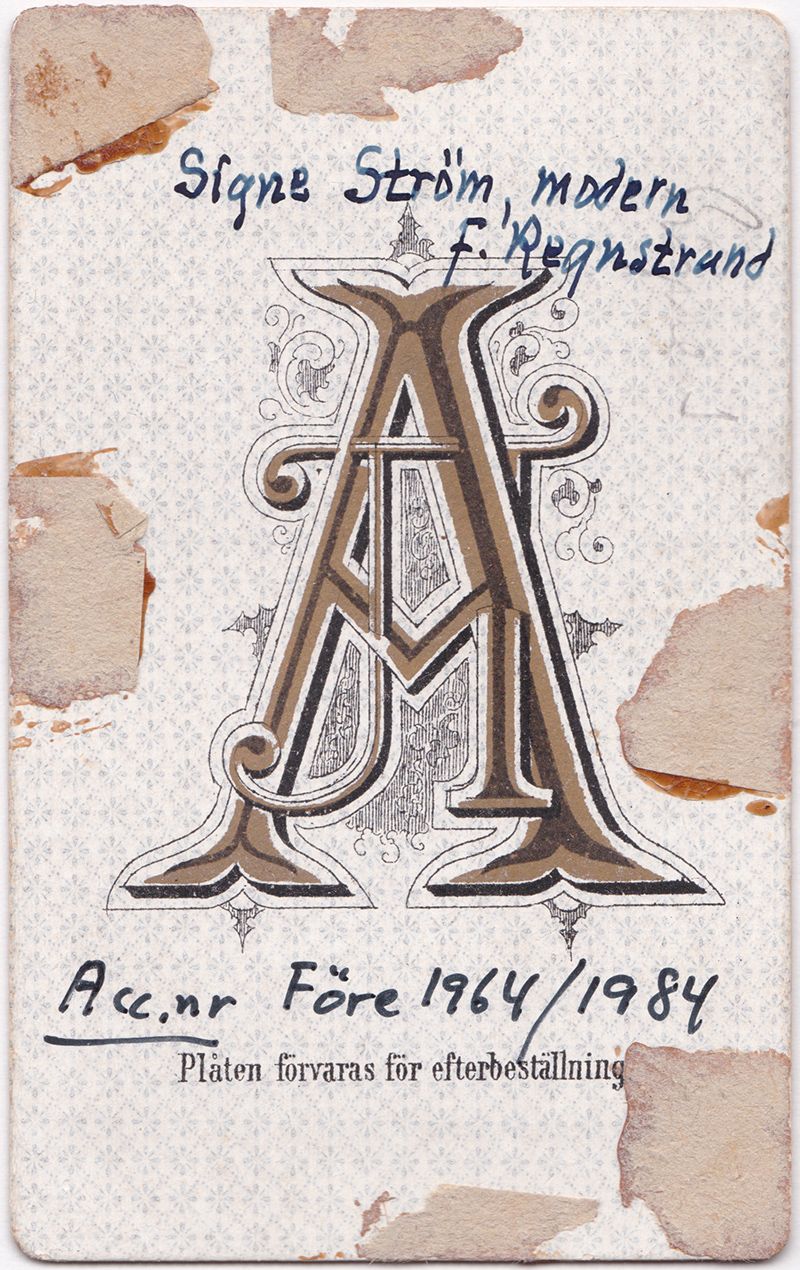 Signe Ström, modern
f. Regnstrand
Acc.nr Före 1964/1984
Plåten förvaras för efterbeställning